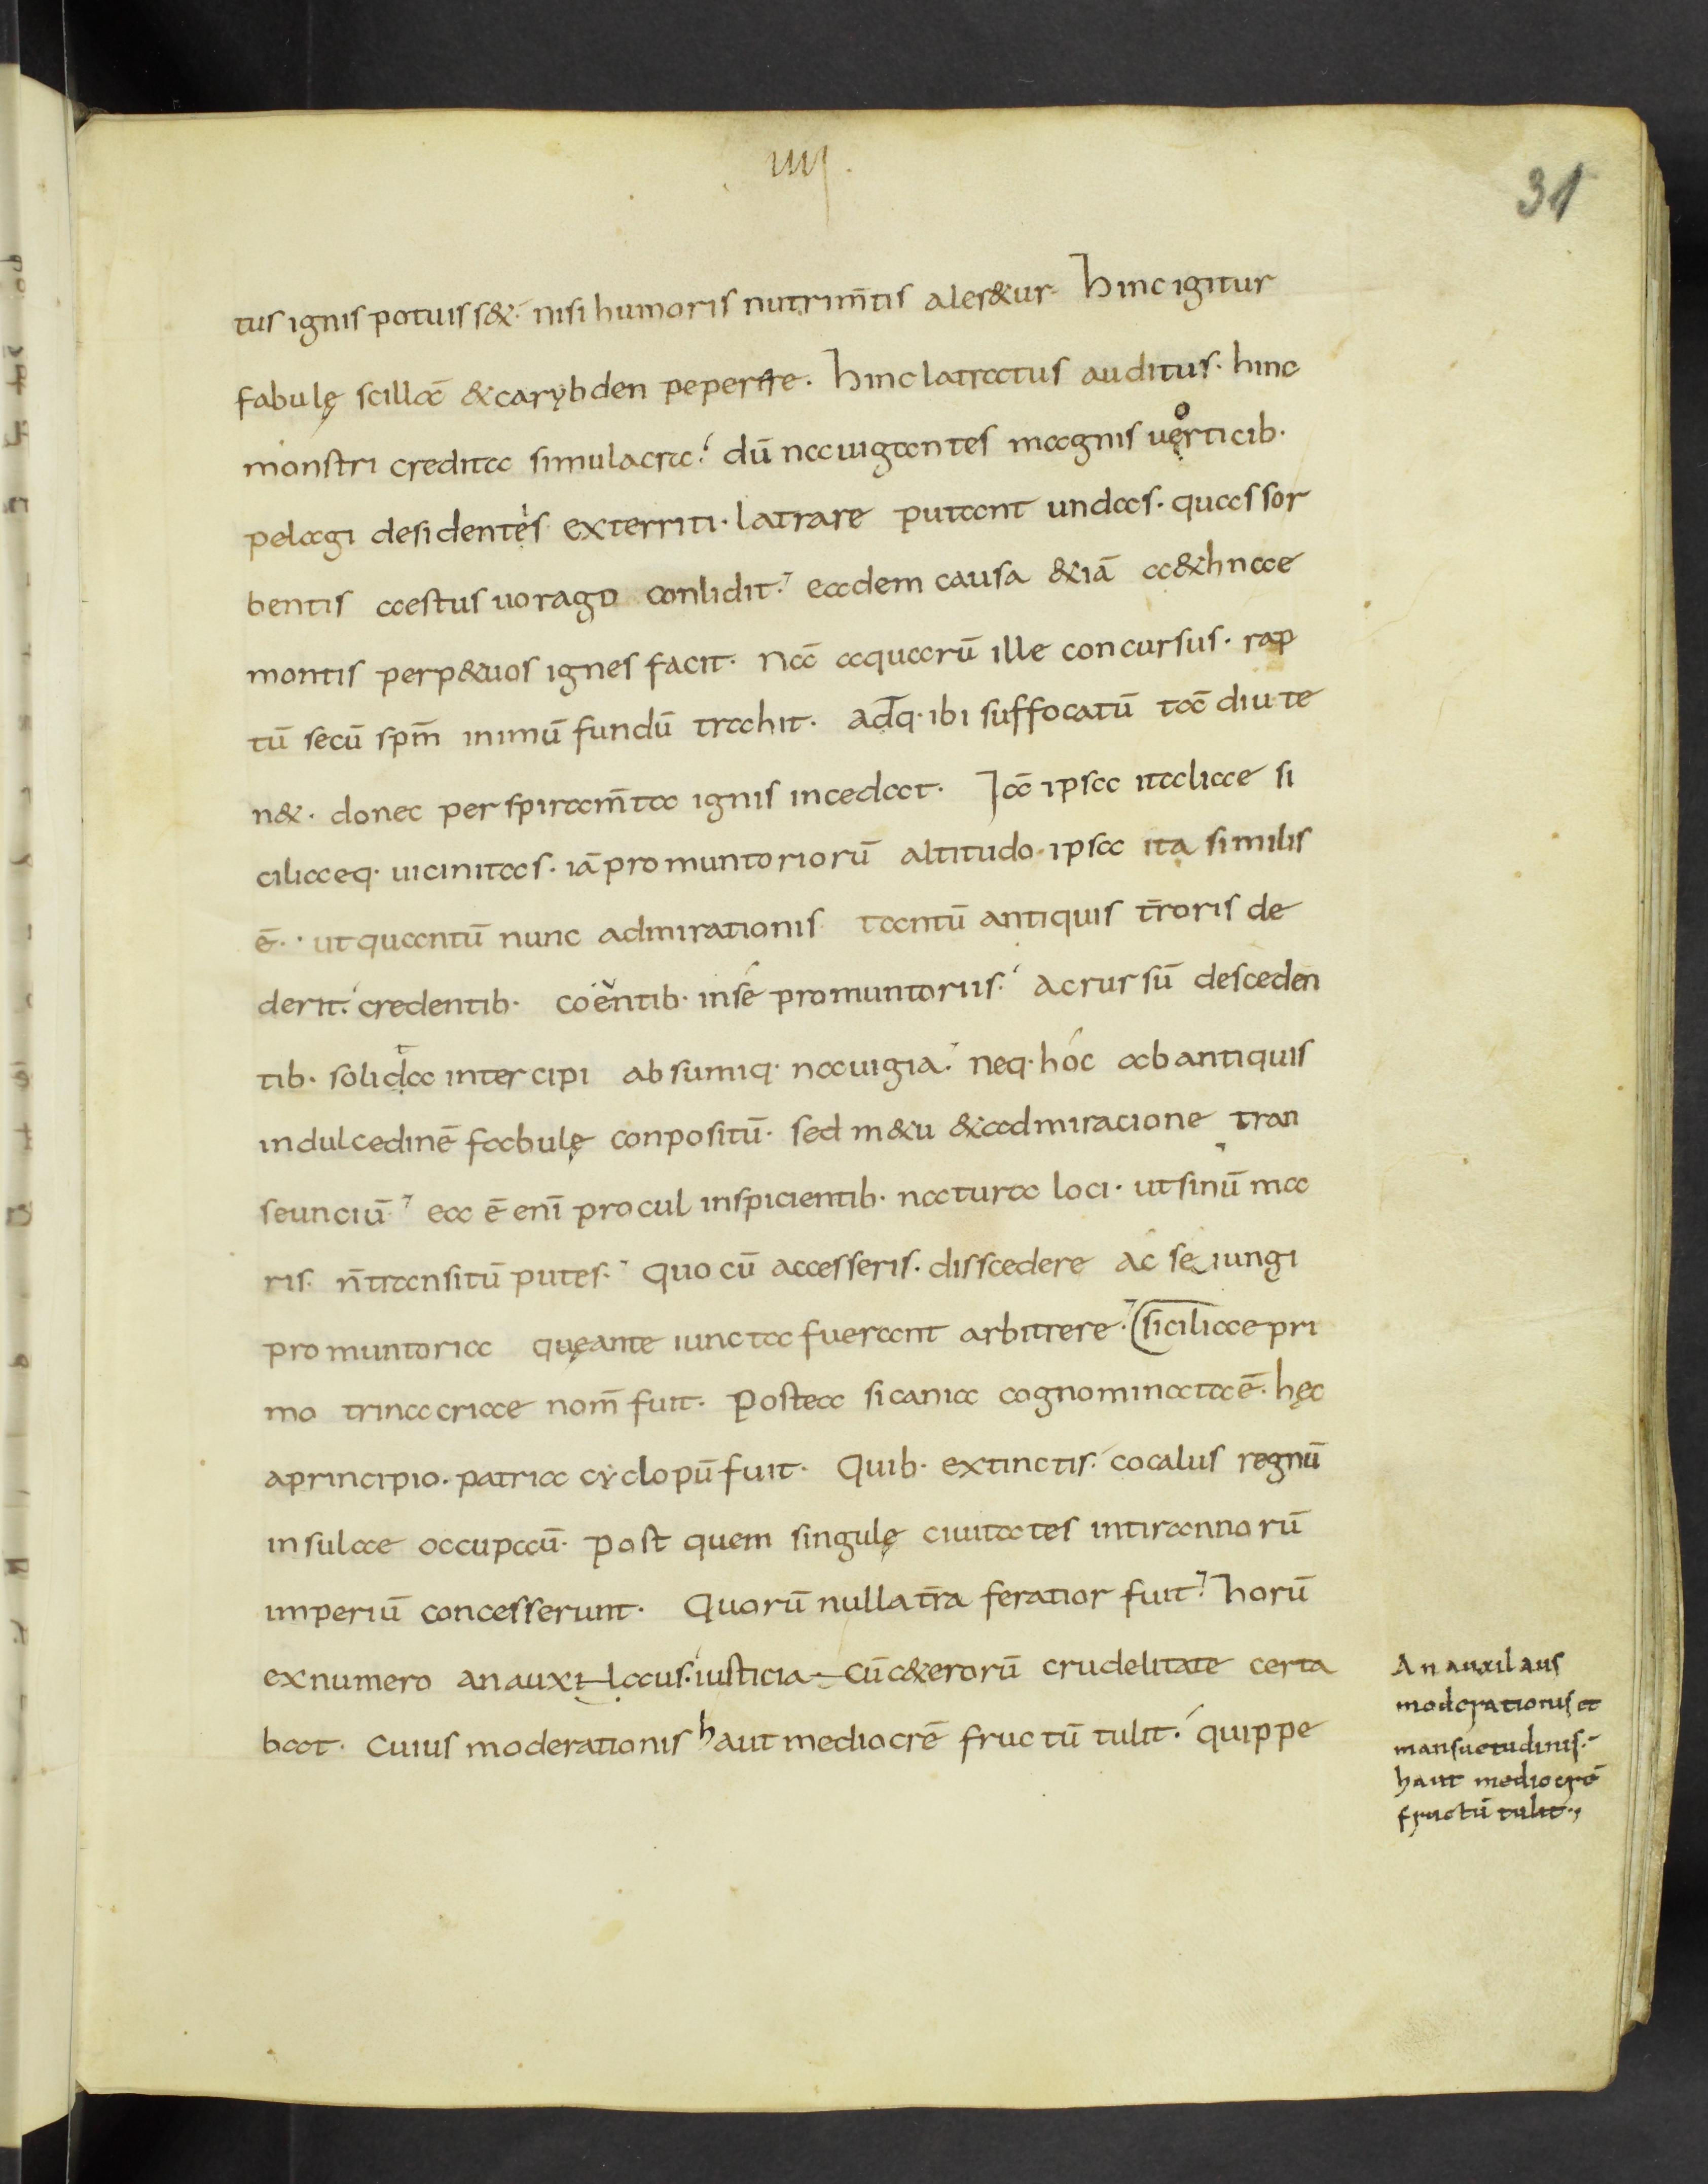 IIII.
31
tus ignis potuiss&. nisi humoris nutrim̄tis ales&ur. hinc igitur
fabulę scillā &carybden peper̄e. hinc latratus auditus. hinc
monstri credita simulacra. dū nauigantes magnis uerticib.
pelagi desidentes exterriti. latrare putant undas. quas sor
bentis aestus uorago conlidit. eadem causa &iā a&hnae
montis perp&uos ignes facit. Nā aquarū ille concursus. rap
tū secū spm̄ inimū fundū trahit. adq. ibi suffocatū tā diu te
n&. donec per spiram̄ta ignis incedat. Iā ipsa italiae si
ciliaeq. uicinitas. iā promuntoriorū altitudo. ipsa ita similis
ē. ut quantū nunc admirationis tantū antiquis t̄roris de
derit. credentib. coentib. inse promuntoriis. ac rursū desceden
tib. solida intercipi absumiq. nauigia. neq. hoc ab antiquis
indulcedinē fabulę conpositū. sed m&u &admiracione tran
seunciū. ea ē enī procul inspicientib. natura loci. ut sinū ma
ris. n̄ transitū putes. Quo cū accesseris. disscedere ac seiungi
promuntoria quęante iuncta fuerant arbitrere. siciliae pri
mo trinacriae nom̄ fuit. Postea sicania cognominata ē. hęc
aprincipio. patria cyclopū fuit. Quib. extinctis. cocalus regnū
insulae occupaū. Post quem singulę ciuitates intirannorū
imperiū concesserunt. Quorū nulla t̄ra feratior fuit. horū
exnumero anauxilaus. iusticia cūc&erorū crudelitate certa
bat. Cuius moderationis haut mediocrē fructū tulit. quippe
Anauxilaus
moderationis et
mansuetudinis.
haut mediocrē
fructū tulit.,